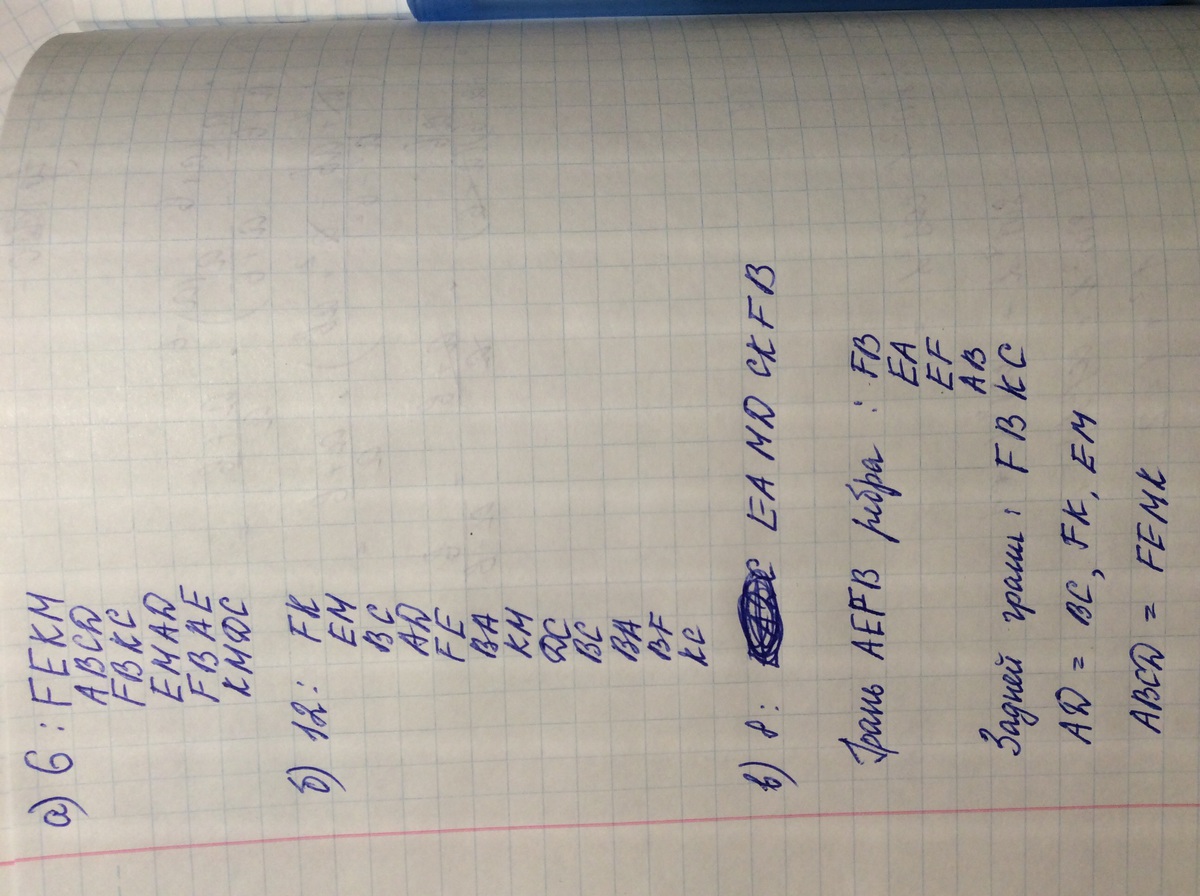 а) 6 : FEKM
ABCD
FBKC
EMAD
FBAE
KMDC
б) 12 : FK
EM
BC
AD
FE
BA
KM
DC
BC
BA
BF
KC
в) 8 : EA MD CK FB
Грань AEFB рёбра : FB
EA
EF
AB
Задней грани : FBKC
AD = BC, FK, EM
ABCD = FEMK